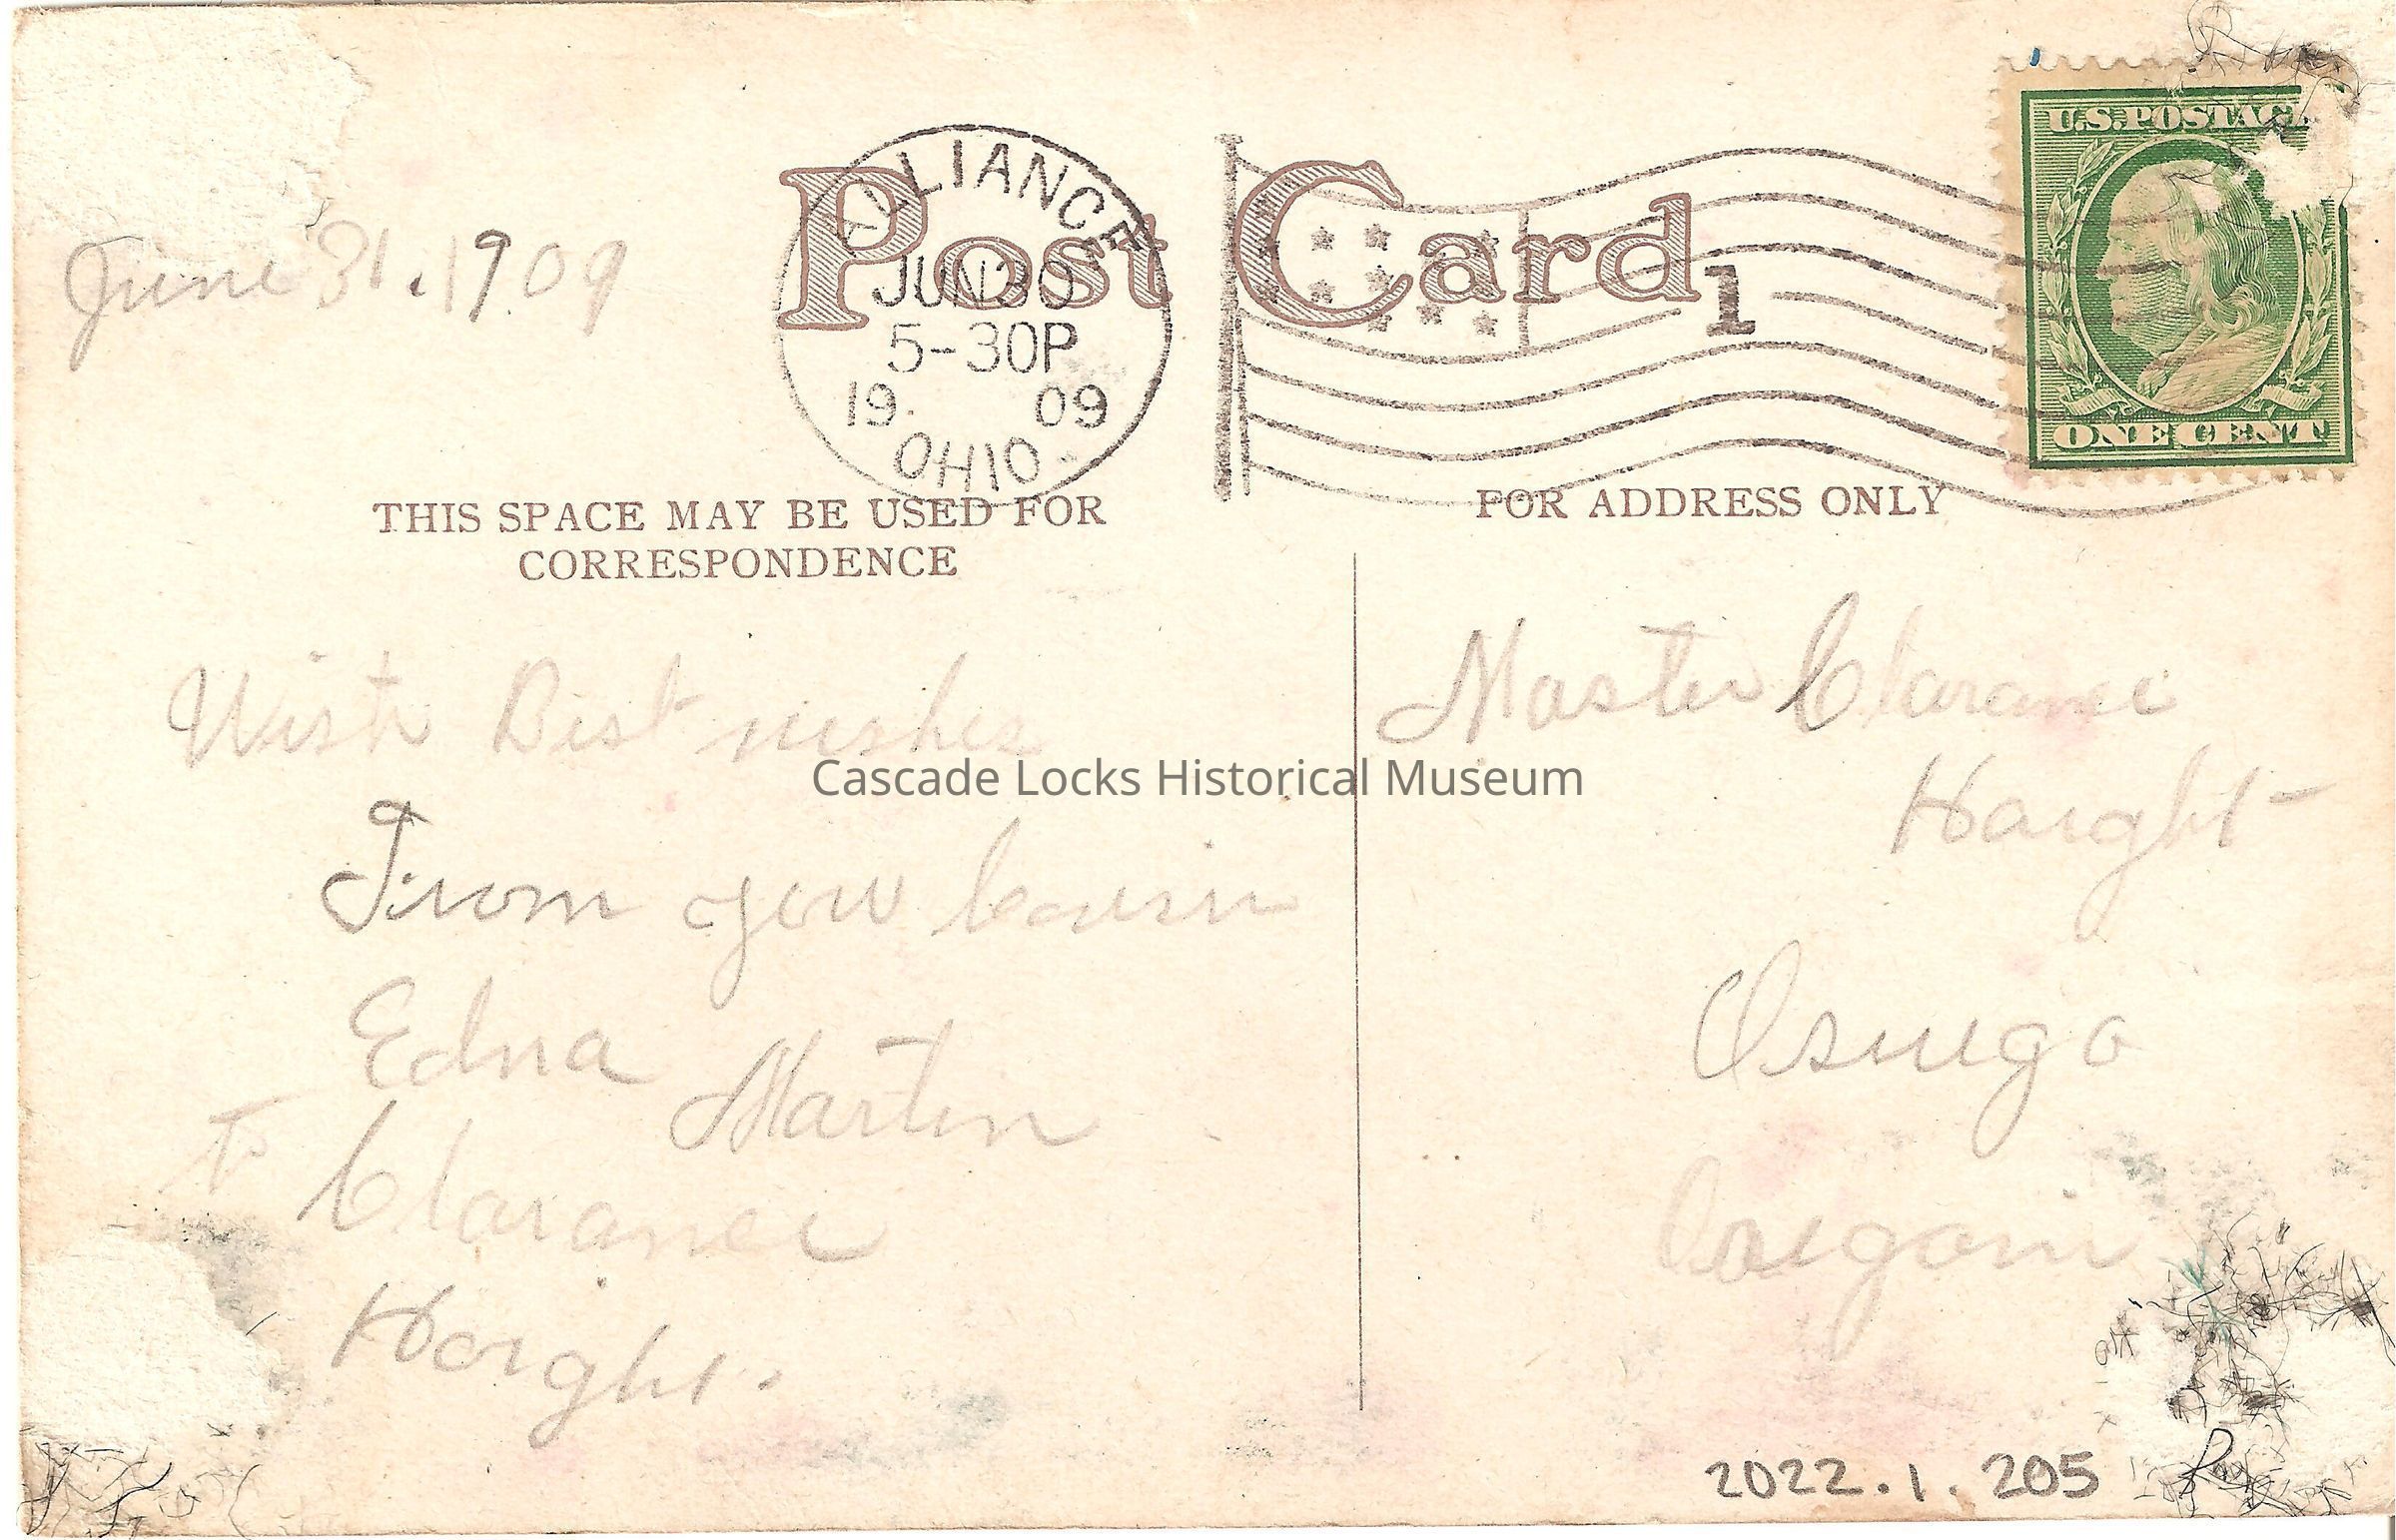 June 31. 1909
Post Card
ALLIANCE
JUN 30
5-30P
19 09
OHIO
1
U.S. POSTAGE
ONE CENT
THIS SPACE MAY BE USED FOR
CORRESPONDENCE
FOR ADDRESS ONLY
With Best wishes
From your Cousin
Edna
Martin
to
Clarance
Haight.
Master Clarance
Haight
Oswego
Oregon
Cascade Locks Historical Museum
2022.1.205